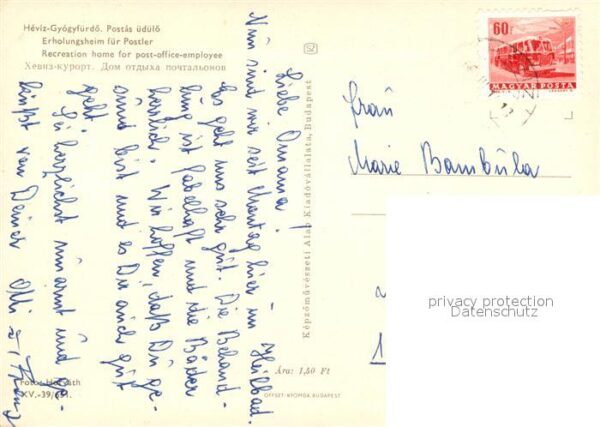 Hévíz-Gyógyfürdő. Postás üdülő
Erholungsheim für Postler
Recreation home for post-office-employee
Хевиз-курорт. Дом отдыха почтальонов
Liebe Omama!
Nun sind wir seit Montag hier im Heilbad.
Es geht uns sehr gut. Die Behand-
lung ist fabelhaft und die Bäder
herrlich. Wir hoffen, daß Du ge-
sund bist und es Dir auch gut
geht.
Sei herzlichst umarmt und ge-
küßt von Deiner Olli
Foto: Horváth
XV.-39/651.
Képzőművészeti Alap Kiadóvállalata, Budapest
Ára: 1,50 Ft
OFFSET-NYOMDA BUDAPEST
60f
MAGYAR POSTA
Frau
Marie Bambula
privacy protection
Datenschutz